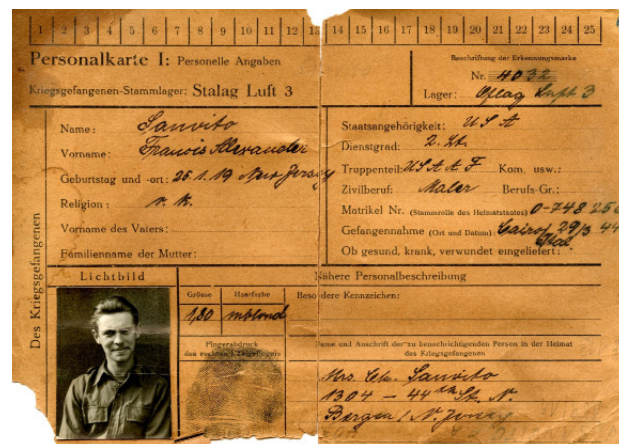 1 2 3 4 5 6 7 8 9 10 11 12 13 14 15 16 17 18 19 20 21 22 23 24 25
Personalkarte I: Personelle Angaben
Kriegsgefangenen-Stammlager: Stalag Luft 3
Beschriftung der Erkennungsmarke
Nr. 4032
Lager: Oflag Luft 3
Des Kriegsgefangenen
Name: Sanvito
Vorname: Francis Alexander
Geburtstag und -ort: 25.1.19 New Jersey
Religion: r. k.
Vorname des Vaters:
Familienname der Mutter:
Staatsangehörigkeit: U S A
Dienstgrad: 2. Lt.
Truppenteil: USAAF Kom. usw.:
Zivilberuf: Maler Berufs-Gr.:
Matrikel Nr. (Stammrolle des Heimatstaates) 0-748 256
Gefangennahme (Ort und Datum): 29/3 44
Ob gesund, krank, verwundet eingeliefert:
Lichtbild
Nähere Personalbeschreibung
Grösse Haarfarbe Besondere Kennzeichen:
1,80 mblond
Fingerabdruck
des rechten Zeigefingers
Name und Anschrift der zu benachrichtigenden Person in der Heimat
des Kriegsgefangenen
Mrs. Ch. Sanvito
1304 - 44th St. N.
Bergen / N. Jersey